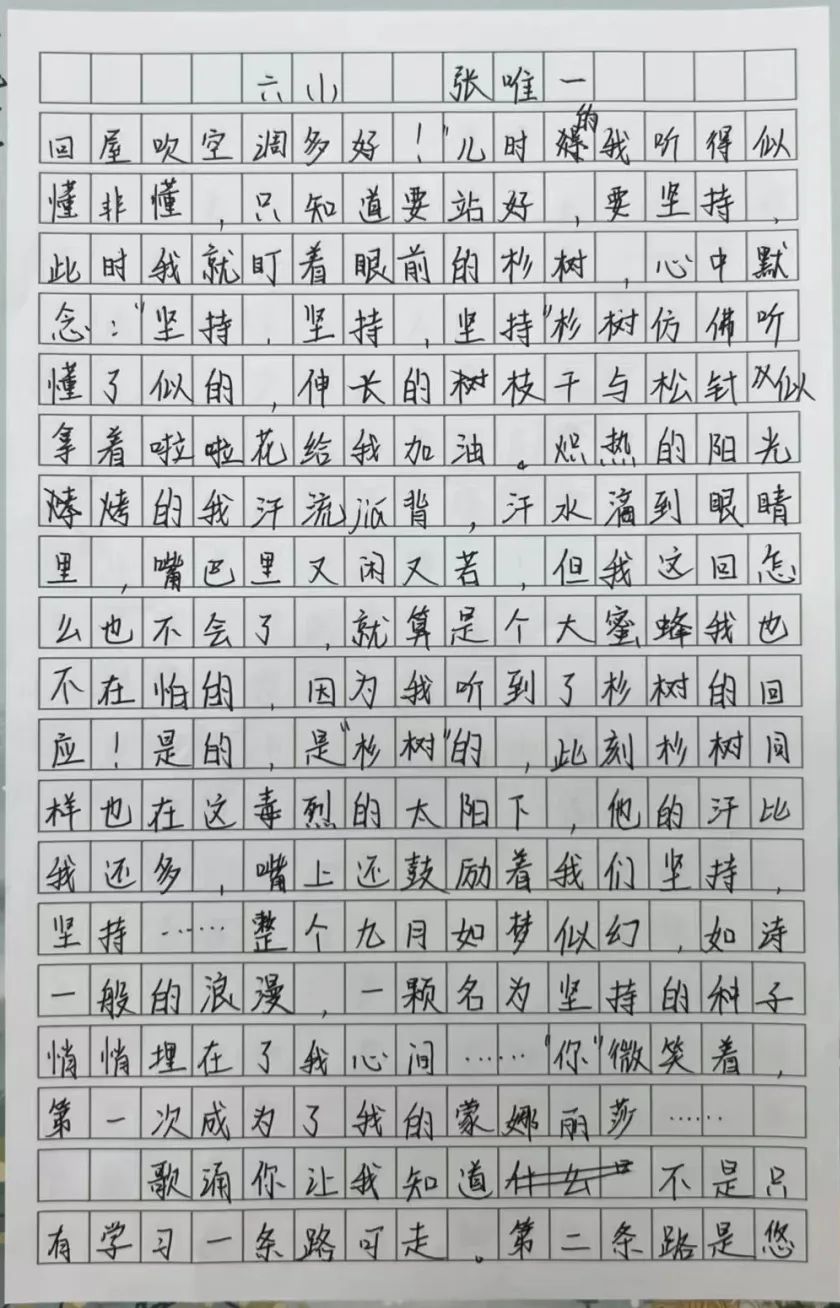 六小 张唯一
回屋吹空调多好！"儿时的我听得似
懂非懂，只知道要站好，要坚持，
此时我就盯着眼前的杉树，心中默
念："坚持，坚持，坚持"杉树仿佛听
懂了似的，伸长的树枝干与松针似
拿着啦啦花给我加油。炽热的阳光
烤的我汗流jia背，汗水滴到眼睛
里，嘴巴里又闲又苦，但我这回怎
么也不会了，就算是个大蜜蜂我也
不在怕的，因为我听到了杉树的回
应！是的，是"杉树"的，此刻杉树同
样也在这毒烈的太阳下，他的汗比
我还多，嘴上还鼓励着我们坚持，
坚持……整个九月如梦似幻，如诗
一般的浪漫，一颗名为坚持的种子
悄悄埋在了我心间……"你"微笑着，
第一次成为了我的蒙娜丽莎……
歌涌你让我知道不是只
有学习一条路可走。第二条路是您